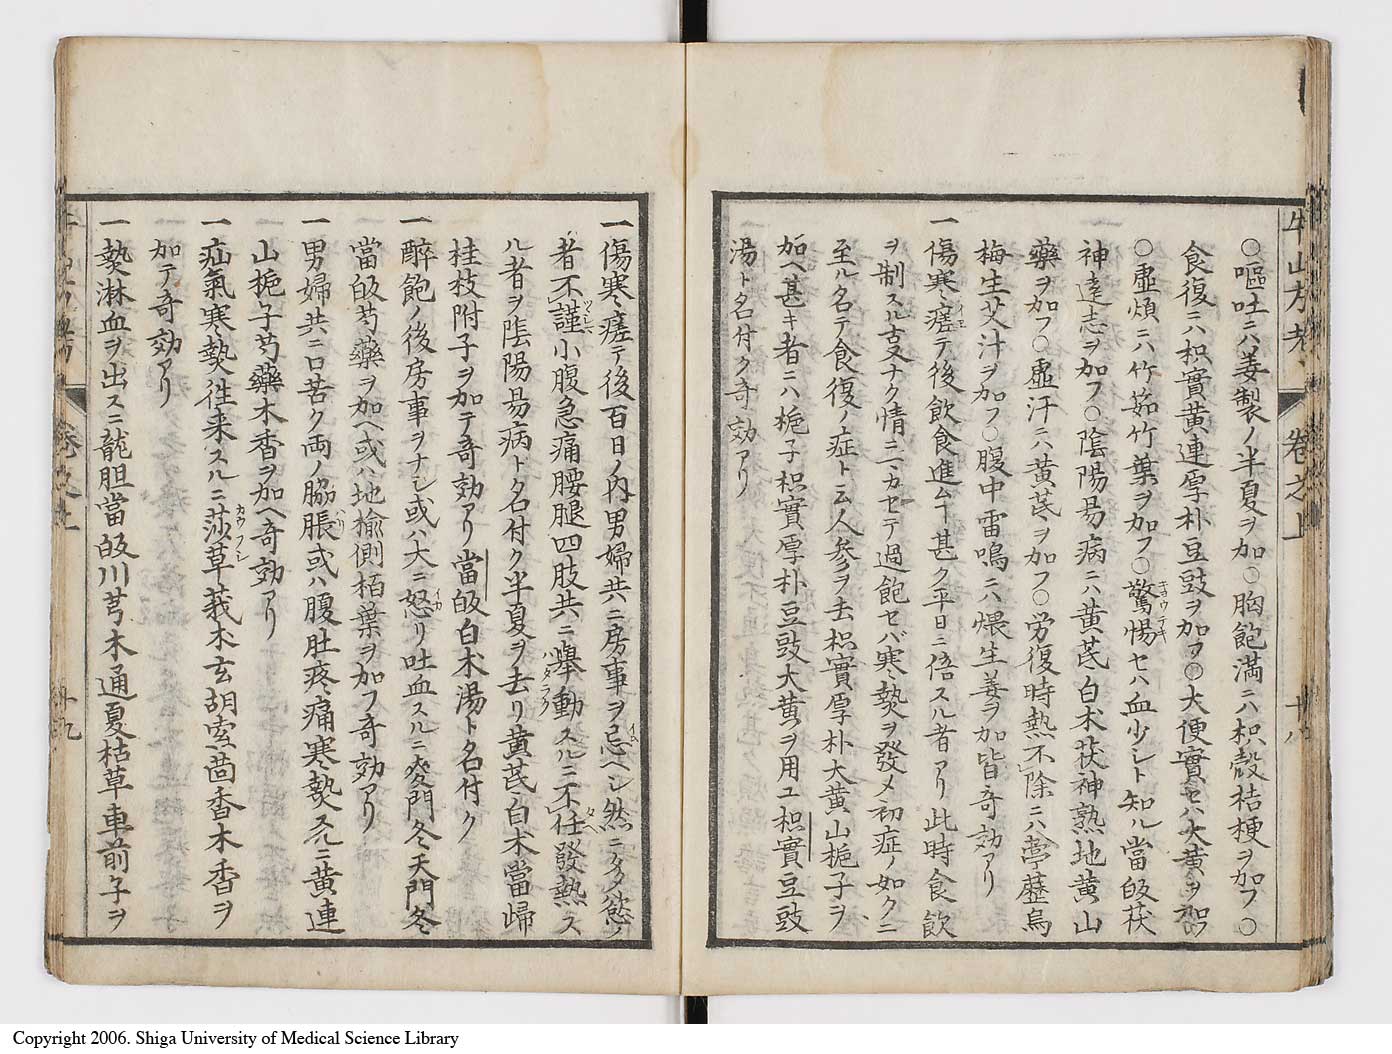 牛山方考 卷之上 十八
○嘔吐ニハ姜製ノ半夏ヲ加○胸飽満ニハ枳殻桔梗ヲ加フ○
食復ニハ枳實黄連厚朴豆豉ヲ加フ○大便實セハ大黄ヲ加
○虚煩ニハ竹茹竹葉ヲ加フ○驚惕セハ血少シト知ル當皈茯
神遠志ヲ加フ○陰陽易病ニハ黄芪白朮茯神熟地黄山
藥ヲ加フ○虚汗ニハ黄芪ヲ加フ○労復時熱不除ニハ葶藶烏
梅生艾汁ヲ加フ○腹中雷鳴ニハ煨生姜ヲ加皆奇効アリ
一傷寒瘥テ後飲食進ムヿ甚ク平日ニ倍スル者アリ此時食飲
ヲ制スルヿナク情ニマカセテ過飽セバ寒熱ヲ發メ初症ノ如クニ
至ル名テ食復ノ症ト云人参ヲ去枳實厚朴大黄山梔子ヲ
加ヘ甚キ者ニハ梔子枳實厚朴豆豉大黄ヲ用ユ枳實豆豉
湯ト名付ク奇効アリ
一傷寒瘥テ後百日ノ内男婦共ニ房事ヲ忌ヘシ然ニタメ慾
者不謹小腹急痛腰腿四肢共ニ擧動スルニ不任發熱ス
ル者ヲ陰陽易病ト名付ク半夏ヲ去リ黄芪白朮當歸
桂枝附子ヲ加テ奇効アリ當皈白朮湯ト名付ク
一醉飽ノ後房事ヲナシ或ハ大ニ怒リ吐血スルニ麥門冬天門冬
當皈芍藥ヲ加ヘ或ハ地楡側栢葉ヲ加フ奇効アリ
一男婦共ニ口苦ク両ノ脇脹或ハ腹肚疼痛寒熱スルニ黄連
山梔子芍藥木香ヲ加ヘ奇効アリ
一疝氣寒熱徃来スルニ莎草莪朮玄胡索茴香木香ヲ
加テ奇効アリ
一熱淋血ヲ出スニ龍胆當皈川芎木通夏枯草車前子ヲ
十九
Copyright 2006. Shiga University of Medical Science Library